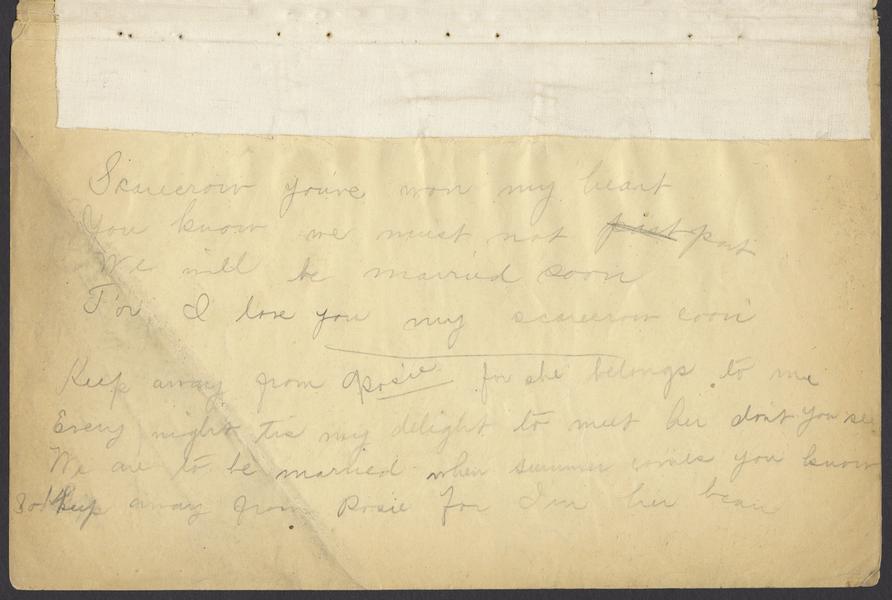 Scarecrow you've won my heart
You know we must not part part
We will be married soon
For I love you my scarecrow coon
Keep away from Rosie for she belongs to me
Every night tis my delight to meet her don't you see
We are to be married when summer comes you know
So keep away from Rosie for I'm her beau